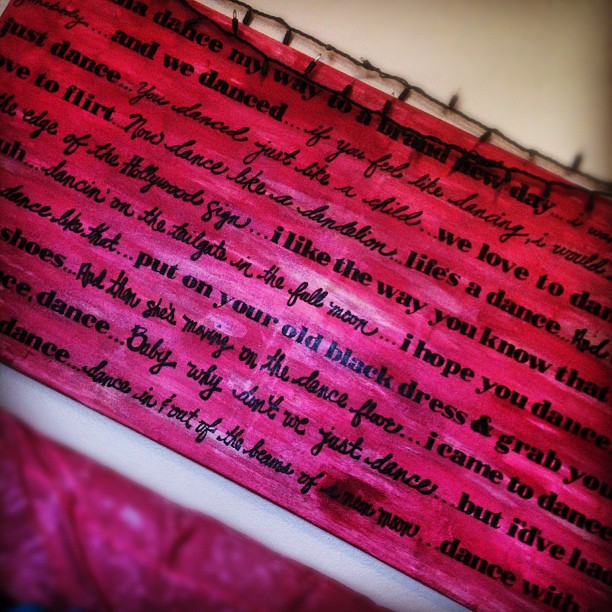 na dance my way to a brand new day... i wan
somebody.... and we danced.... if you feel like dancing, i would
just dance... You danced just like a child... we love to dan
ove to flirt... Now dance like a dandelion... life's a dance... And
the edge of the Hollywood sign... i like the way you know that
uh... dancin' on the tailgate in the fall moon... i hope you dance
dance like that... put on your old black dress & grab you
shoes... And then she's moving on the dance floor... i came to dance
ce, dance... Baby why don't we just dance... but i'dve had
dance... dance in & out of the beams of a neon moon... dance with